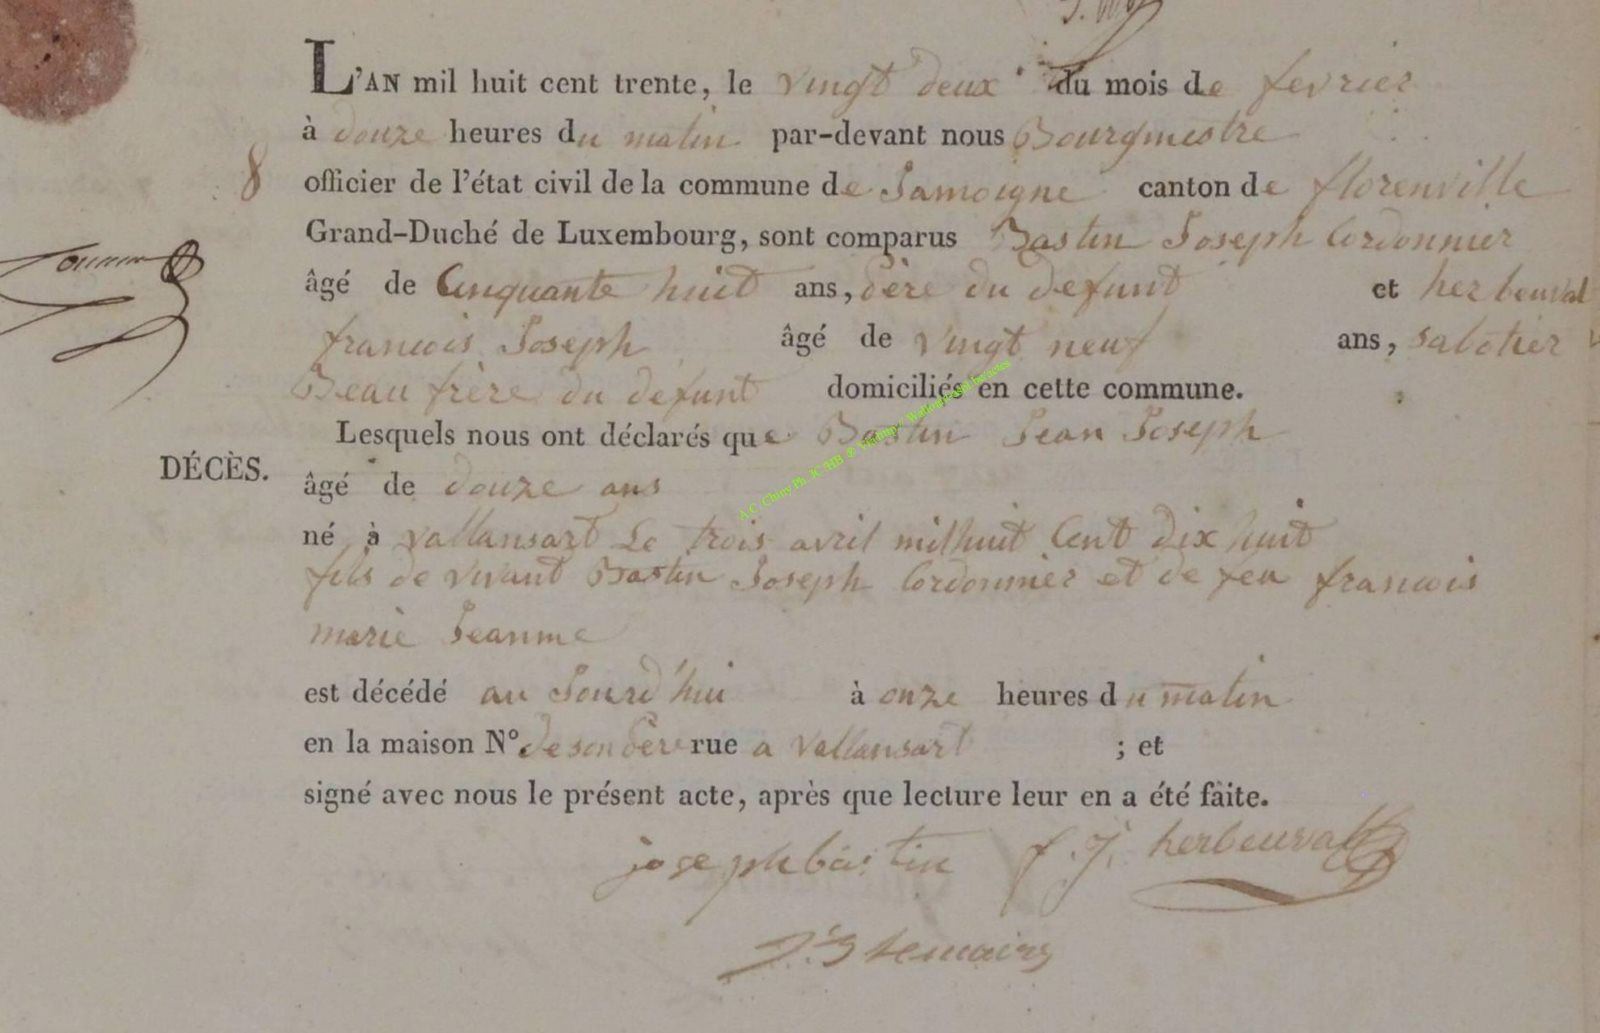 L'AN mil huit cent trente, le vingt deux du mois de fevrier
à douze heures du matin par-devant nous Bourgmestre
8 officier de l'état civil de la commune de Jamoigne canton de florenville
Grand-Duché de Luxembourg, sont comparus Bastin Joseph Cordonnier
âgé de Cinquante huit ans, père du defunt et herbeuval
francois Joseph âgé de vingt neuf ans, sabotier
Beau frère du defunt domiciliés en cette commune.
Lesquels nous ont déclarés que Bastin Jean Joseph
DÉCÈS.
âgé de douze ans
né à vallansart Le trois avril mil huit Cent dix huit
fils de vivant Bastin Joseph Cordonnier et de feu francois
marie Jeanne
est décédé au Jourd'hui à onze heures du matin
en la maison N° de son père rue a vallansart ; et
signé avec nous le présent acte, après que lecture leur en a été faite.
joseph bastin f. J. herbeuval